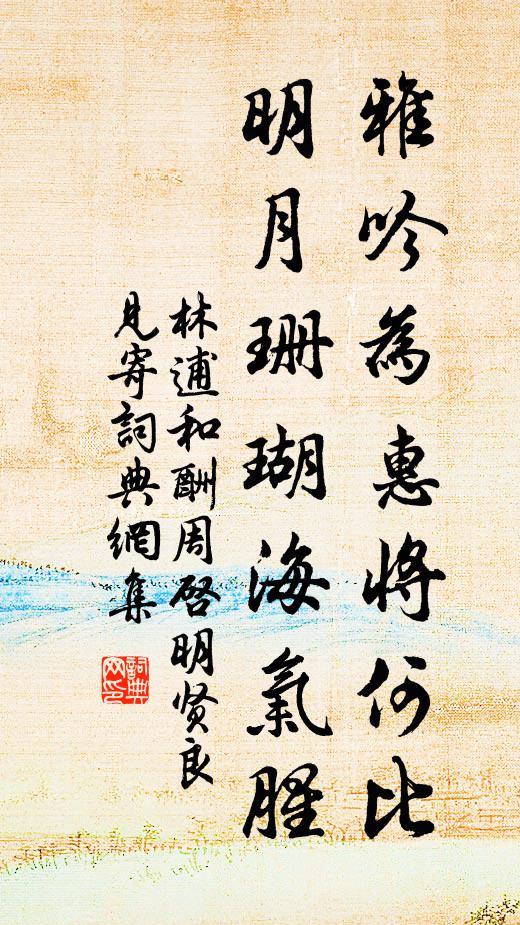 雅吟為惠將何比
明月珊瑚海氣腥
林逋和酬周啓明贤良
見寄詞典網集
詞典
网印